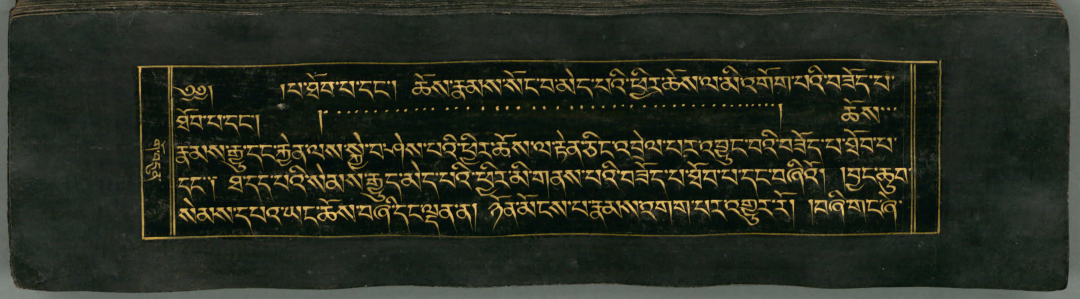 ༄༅། །པ་ཐོབ་པ་དང་། ཆོས་རྣམས་སོང་བ་མེད་པའི་ཕྱིར་ཆོས་ལ་མི་འགོག་པའི་བཟོད་པ་
ཐོབ་པ་དང་། །་་་་་་་་་་་་་་་་་་་་་་་་་། ཆོས་་་
རྣམས་རྒྱུ་དང་རྐྱེན་ལས་སྐྱེ་བ་ཤེས་པའི་ཕྱིར་ཆོས་ལ་རྟེན་ཅིང་འབྲེལ་པར་འབྱུང་བའི་བཟོད་པ་ཐོབ་པ་
དང་། ཐ་དད་པའི་སེམས་རྒྱུད་མེད་པའི་ཕྱིར་མི་གནས་པའི་བཟོད་པ་ཐོབ་པ་དང་བཞིའོ། །བྱང་ཆུབ་
སེམས་དཔའ་ཡང་ཆོས་བཞི་དང་ལྡན་ན། ཉོན་མོངས་པ་རྣམས་འགག་པར་འགྱུར་རོ། །བཞི་གང་ཞེ་